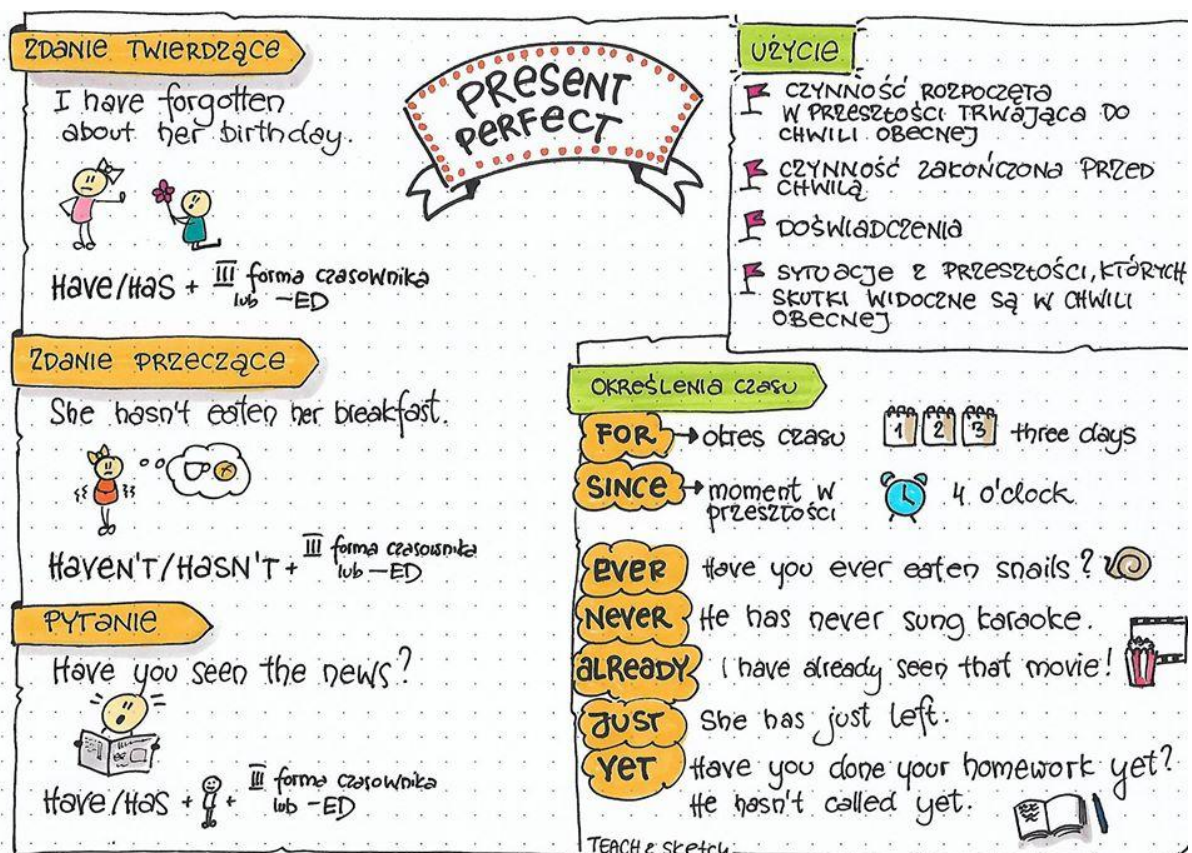 PRESENT
PERFECT
ZDANIE TWIERDZĄCE
I have forgotten
about her birthday.
HAVE/HAS + III forma czasownika
lub -ED
ZDANIE PRZECZĄCE
She hasn't eaten her breakfast.
HAVEN'T/HASN'T + III forma czasownika
lub -ED
PYTANIE
Have you seen the news?
HAVE/HAS + + III forma czasownika
lub -ED
UŻYCIE
CZYNNOŚĆ ROZPOCZĘTA
W PRZESZŁOŚCI TRWAJĄCA DO
CHWILI OBECNEJ
CZYNNOŚĆ ZAKOŃCZONA PRZED
CHWILĄ
DOŚWIADCZENIA
SYTUACJE Z PRZESZŁOŚCI, KTÓRYCH
SKUTKI WIDOCZNE SĄ W CHWILI
OBECNEJ
OKREŚLENIA CZASU
FOR → okres czasu 1 2 3 three days
SINCE → moment w
przeszłości 4 o'clock.
EVER Have you ever eaten snails?
NEVER He has never sung karaoke.
ALREADY I have already seen that movie!
JUST She has just left.
YET Have you done your homework yet?
He hasn't called yet.
TEACH & SKETCH